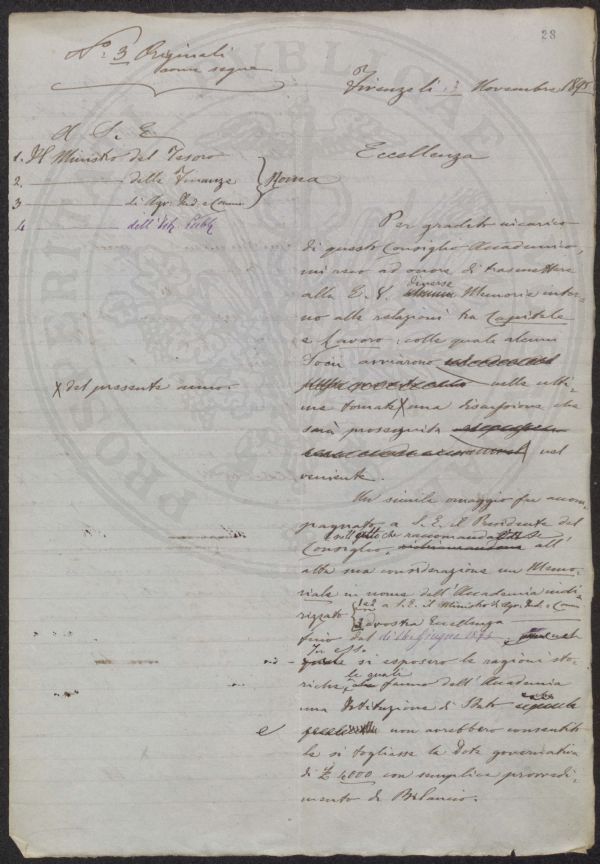 28
N.º 3 Originali
come segue
Firenze li 3 Novembre 1895
A S. E.
1. Il Ministro del Tesoro
2. — delle Finanze
3 — di Agr. Ind. e Comm
4 — dell'Ist. Pubb.
Roma
Eccellenza
Per gradito incarico
di questo Consiglio Accademico,
mi reco ad onore di trasmettere
alla E. V. diverse Memorie intor-
no alle relazioni tra Capitale
e Lavoro: colle quali alcuni
Soci avviarono
nelle ulti-
me tornate X una discussione che
X del presente anno
sarà proseguita nel
veniente.
Un simile omaggio fu accom-
pagnato a S. E. il Presidente del
Consiglio, che raccomanda all'
alta sua considerazione un Memo-
riale in nome dell'Accademia indi-
rizzato a S. E. il Ministro di Agr. Ind. e Comm
a vostra Eccellenza
fino dal di Giugno
In esso
si esposero le ragioni sto-
riche, le quali fanno dell'Accademia
una Istituzione di Stato
e non avrebbero consentito
che si togliesse la Dote governativa
di £ 4000 con semplice provvedi-
mento di Bilancio.
PROSPERITATI PUBLICAE